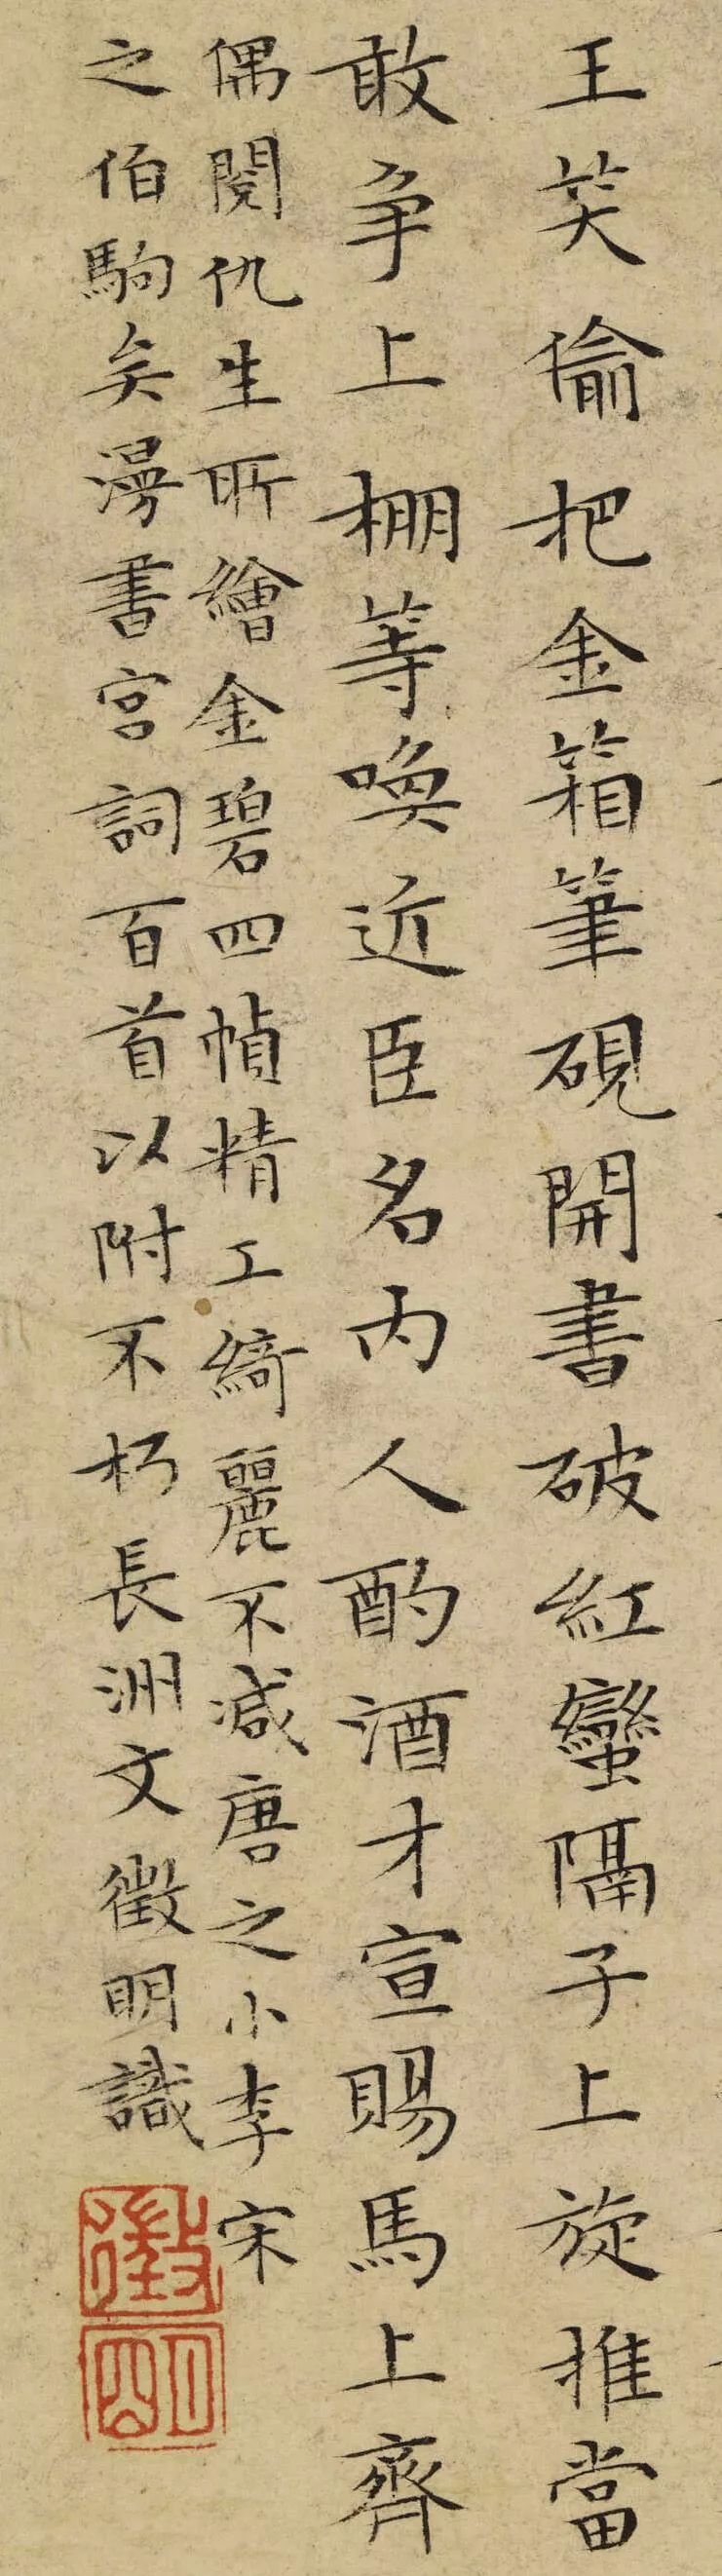 王笑偷把金箱筆硯開書破紅蠻隔子上旋推當
敢爭上棚等喚近臣名内人酌酒才宣賜馬上齊
偶閱仇生所繪金碧四幀精工綺麗不減唐之小李宋
之伯駒矣漫書宮詞百首以附不朽長洲文徵明識
徵
明